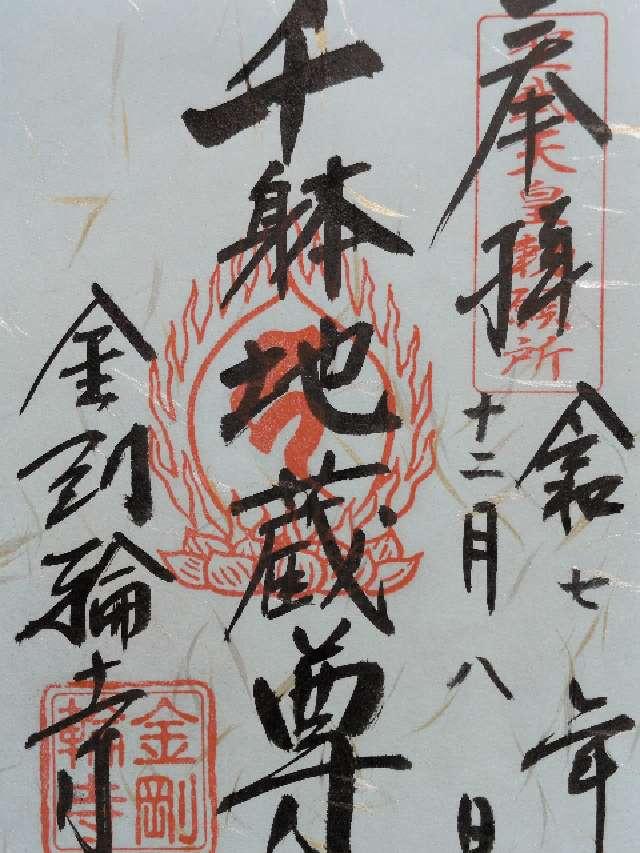 奉拝
聖武天皇勅願所
令和七年
十二月八日
千躰地蔵尊
金剛輪寺
金剛輪寺